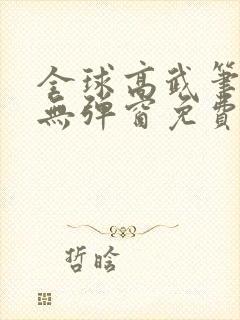 全球高武筆
無彈窗免費
哲晗